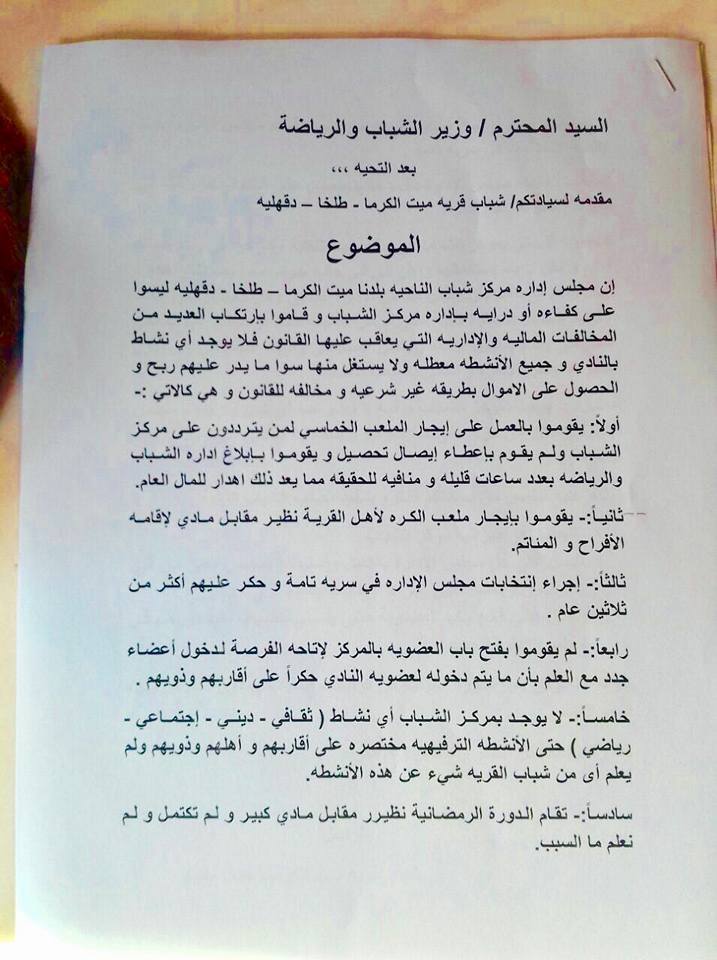 السيد المحترم / وزير الشباب والرياضة
بعد التحيه ،،،
مقدمه لسيادتكم/ شباب قريه ميت الكرما - طلخا – دقهليه
الموضوع
إن مجلس إداره مركز شباب الناحيه بلدنا ميت الكرما – طلخا - دقهليه ليسوا
على كفاءه أو درايه بإداره مركز الشباب و قاموا بإرتكاب العديد من
المخالفات الماليه والإداريه التي يعاقب عليها القانون فلا يوجد أي نشاط
بالنادي و جميع الأنشطه معطله ولا يستغل منها سوا ما يدر عليهم ربح و
الحصول على الاموال بطريقه غير شرعيه و مخالفه للقانون و هي كالاتي :-
أولاً: يقوموا بالعمل على إيجار الملعب الخماسي لمن يترددون على مركز
الشباب ولم يقوم بإعطاء إيصال تحصيل و يقوموا بإبلاغ اداره الشباب
والرياضه بعدد ساعات قليله و منافيه للحقيقه مما يعد ذلك اهدار للمال العام.
ثانياً:- يقوموا بإيجار ملعب الكره لأهل القرية نظير مقابل مادي لإقامه
الأفراح و المناتم.
ثالثاً:- إجراء إنتخابات مجلس الإداره في سريه تامة و حكر عليهم أكثر من
ثلاثين عام .
رابعاً:- لم يقوموا بفتح باب العضويه بالمركز لإتاحه الفرصة لدخول أعضاء
جدد مع العلم بأن ما يتم دخوله لعضويه النادي حكراً على أقاربهم وذويهم .
خامساً:- لا يوجد بمركز الشباب أي نشاط ( ثقافي - ديني - إجتماعي -
رياضي ) حتى الأنشطه الترفيهيه مختصره على أقاربهم و أهلهم وذويهم ولم
يعلم أى من شباب القريه شيء عن هذه الأنشطه.
سادساً:- تقام الدورة الرمضانية نظيرر مقابل مادي كبير و لم تكتمل و لم
نعلم ما السبب.